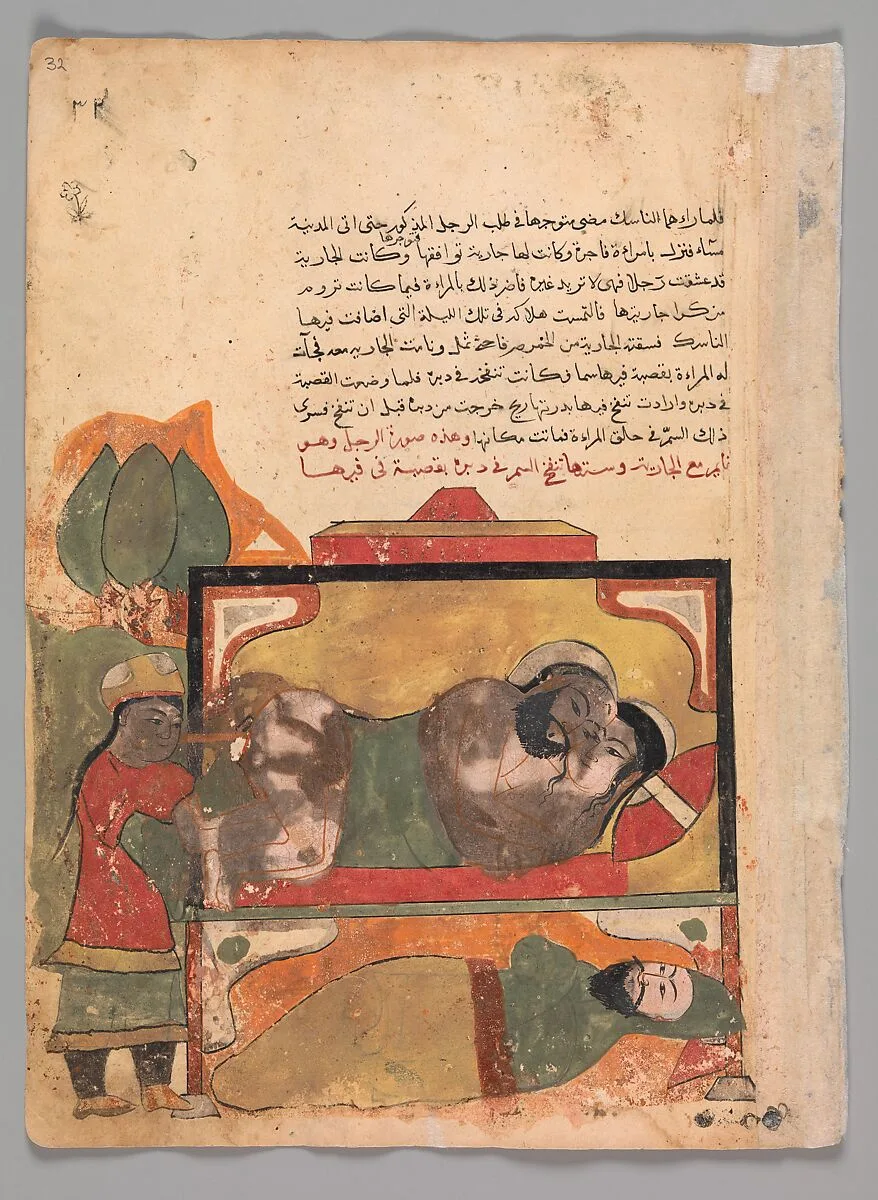 32
٣٢
فلما راءهما الناسك مضى متوجها فى طلب الرجل المذكور حتى اتى المدينة
مساء فنزل بامراءة فاجرة وكانت لها جارية توافقها وكانت الجارية
قد عشقت رجلا فهى لا تريد غيره فاضر ذلك بالمراءة فيما كانت تروم
من كرا جاريتها فالتمست هلاكه فى تلك الليلة التى اضافت فيها
الناسك فسقته الجارية من الخمر صرفا حتى ثمل ونامت الجاريه معه فجآت
له المراءة بقصبة فيها سما وكانت تنفخه فى دبره فلما وضعت القصبة
فى دبره وارادت تنفخ فيها بدرتها ريح خرجت من دبره قبل ان تنفخ فسرى
ذلك السمّ فى حلق المراءة فماتت مكانها وهذه صورة الرجل وهو
نايم مع الجارية وستها تنفخ السم فى دبره بقصبة فى فيها